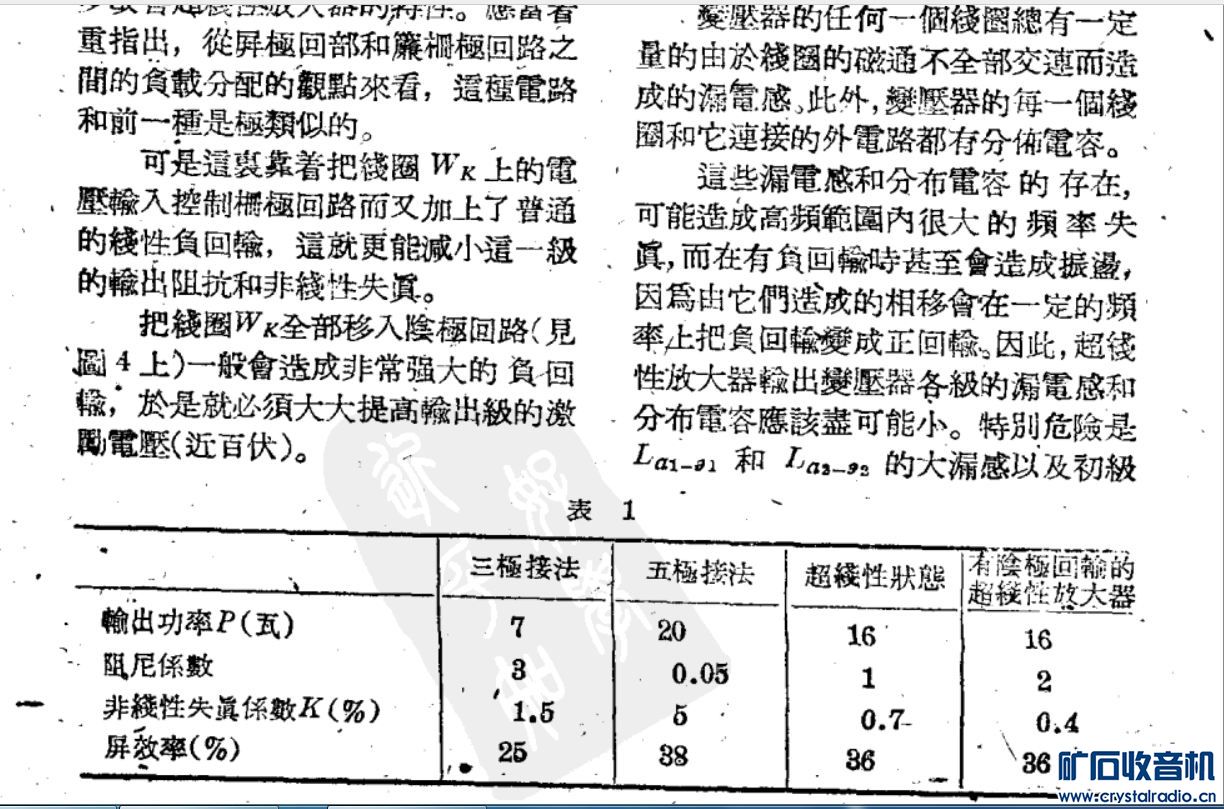 重指出，從屏極回部和簾柵極回路之
間的負載分配的觀點來看，這種電路
和前一種是極類似的。
可是這裏靠着把綫圈 WK 上的電
壓輸入控制柵極回路而又加上了普通
的綫性負回輸，這就更能减小這一級
的輸出阻抗和非綫性失眞。
把綫圈WK全部移入陰極回路(見
圖 4 上)一般會造成非常强大的負回
輸，於是就必須大大提高輸出級的激
勵電壓(近百伏)。
變壓器的任何一個綫圈總有一定
量的由於綫圈的磁通不全部交連而造
成的漏電感。此外，變壓器的每一個綫
圈和它連接的外電路都有分佈電容。
這些漏電感和分布電容的存在，
可能造成高頻範圍內很大的頻率失
眞，而在有負回輸時甚至會造成振盪，
因爲由它們造成的相移會在一定的頻
率上把負回輸變成正回輸。因此，超綫
性放大器輸出變壓器各級的漏電感和
分布電容應該盡可能小。特別危險是
La1-э1 和 La2-э2 的大漏感以及初級
表 1
三極接法 五極接法 超綫性狀態 有陰極回輸的
超綫性放大器
輸出功率P(瓦) 7 20 16 16
阻尼係數 3 0.05 1 2
非綫性失眞係數K(%) 1.5 5 0.7 0.4
屏效率(%) 25 38 36 36
矿石收音机
www.crystalradio.cn